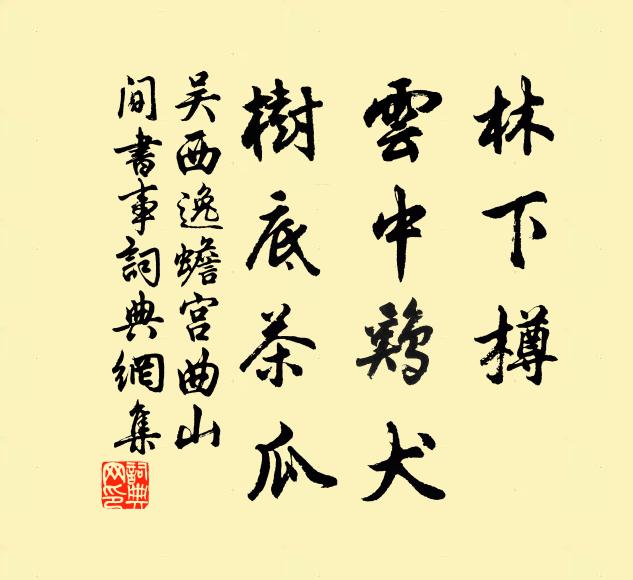 林下樽
雲中鷄犬
樹底茶瓜
吴西逸蟾宫曲山
間書事詞典網集
詞典网印